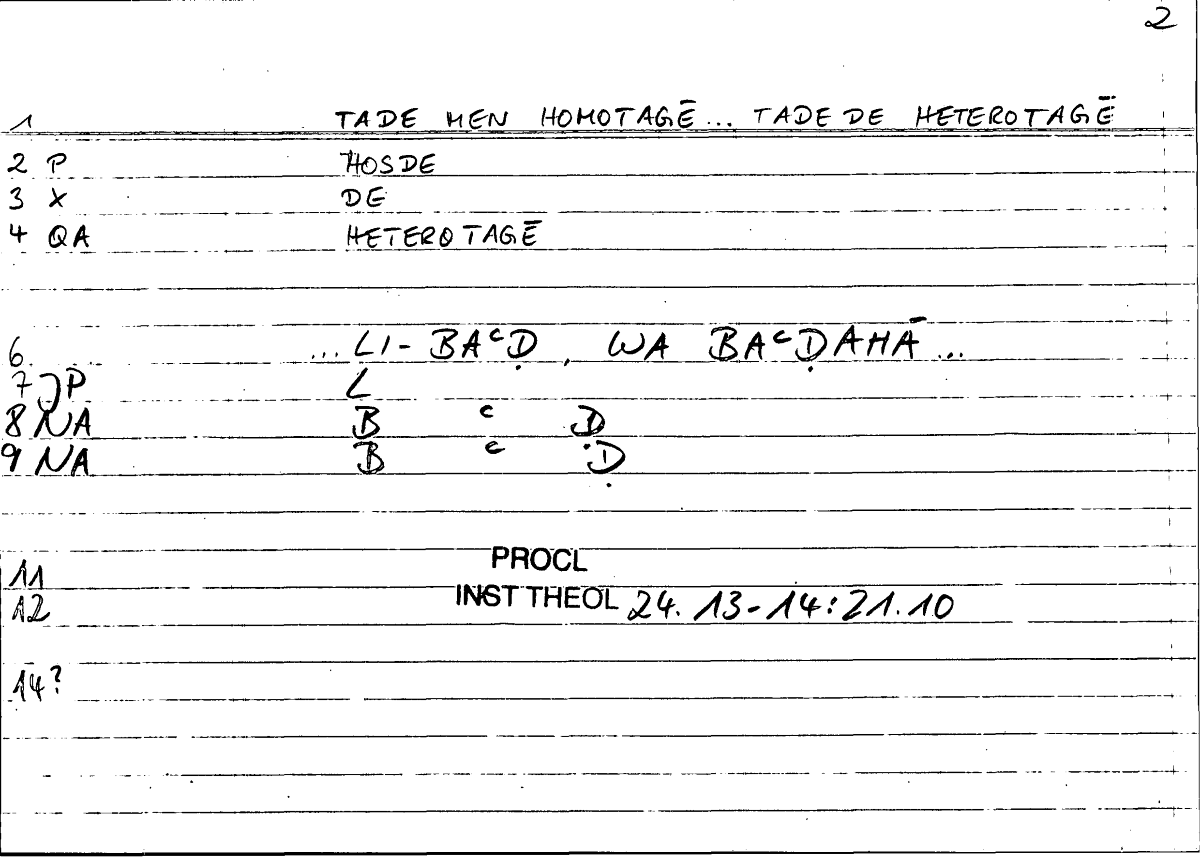 2
1 TADE MEN HOMOTAGĒ... TADE DE HETEROTAGĒ
2 P HOSDE
3 X DE
4 QA HETEROTAGĒ
6. ... LI- BAᶜḌ, WA BAᶜḌAHĀ...
7 JP L
8 NA B ᶜ Ḍ
9 NA B ᶜ Ḍ
11 PROCL
12 INST THEOL 24. 13-14: 21.10
14?